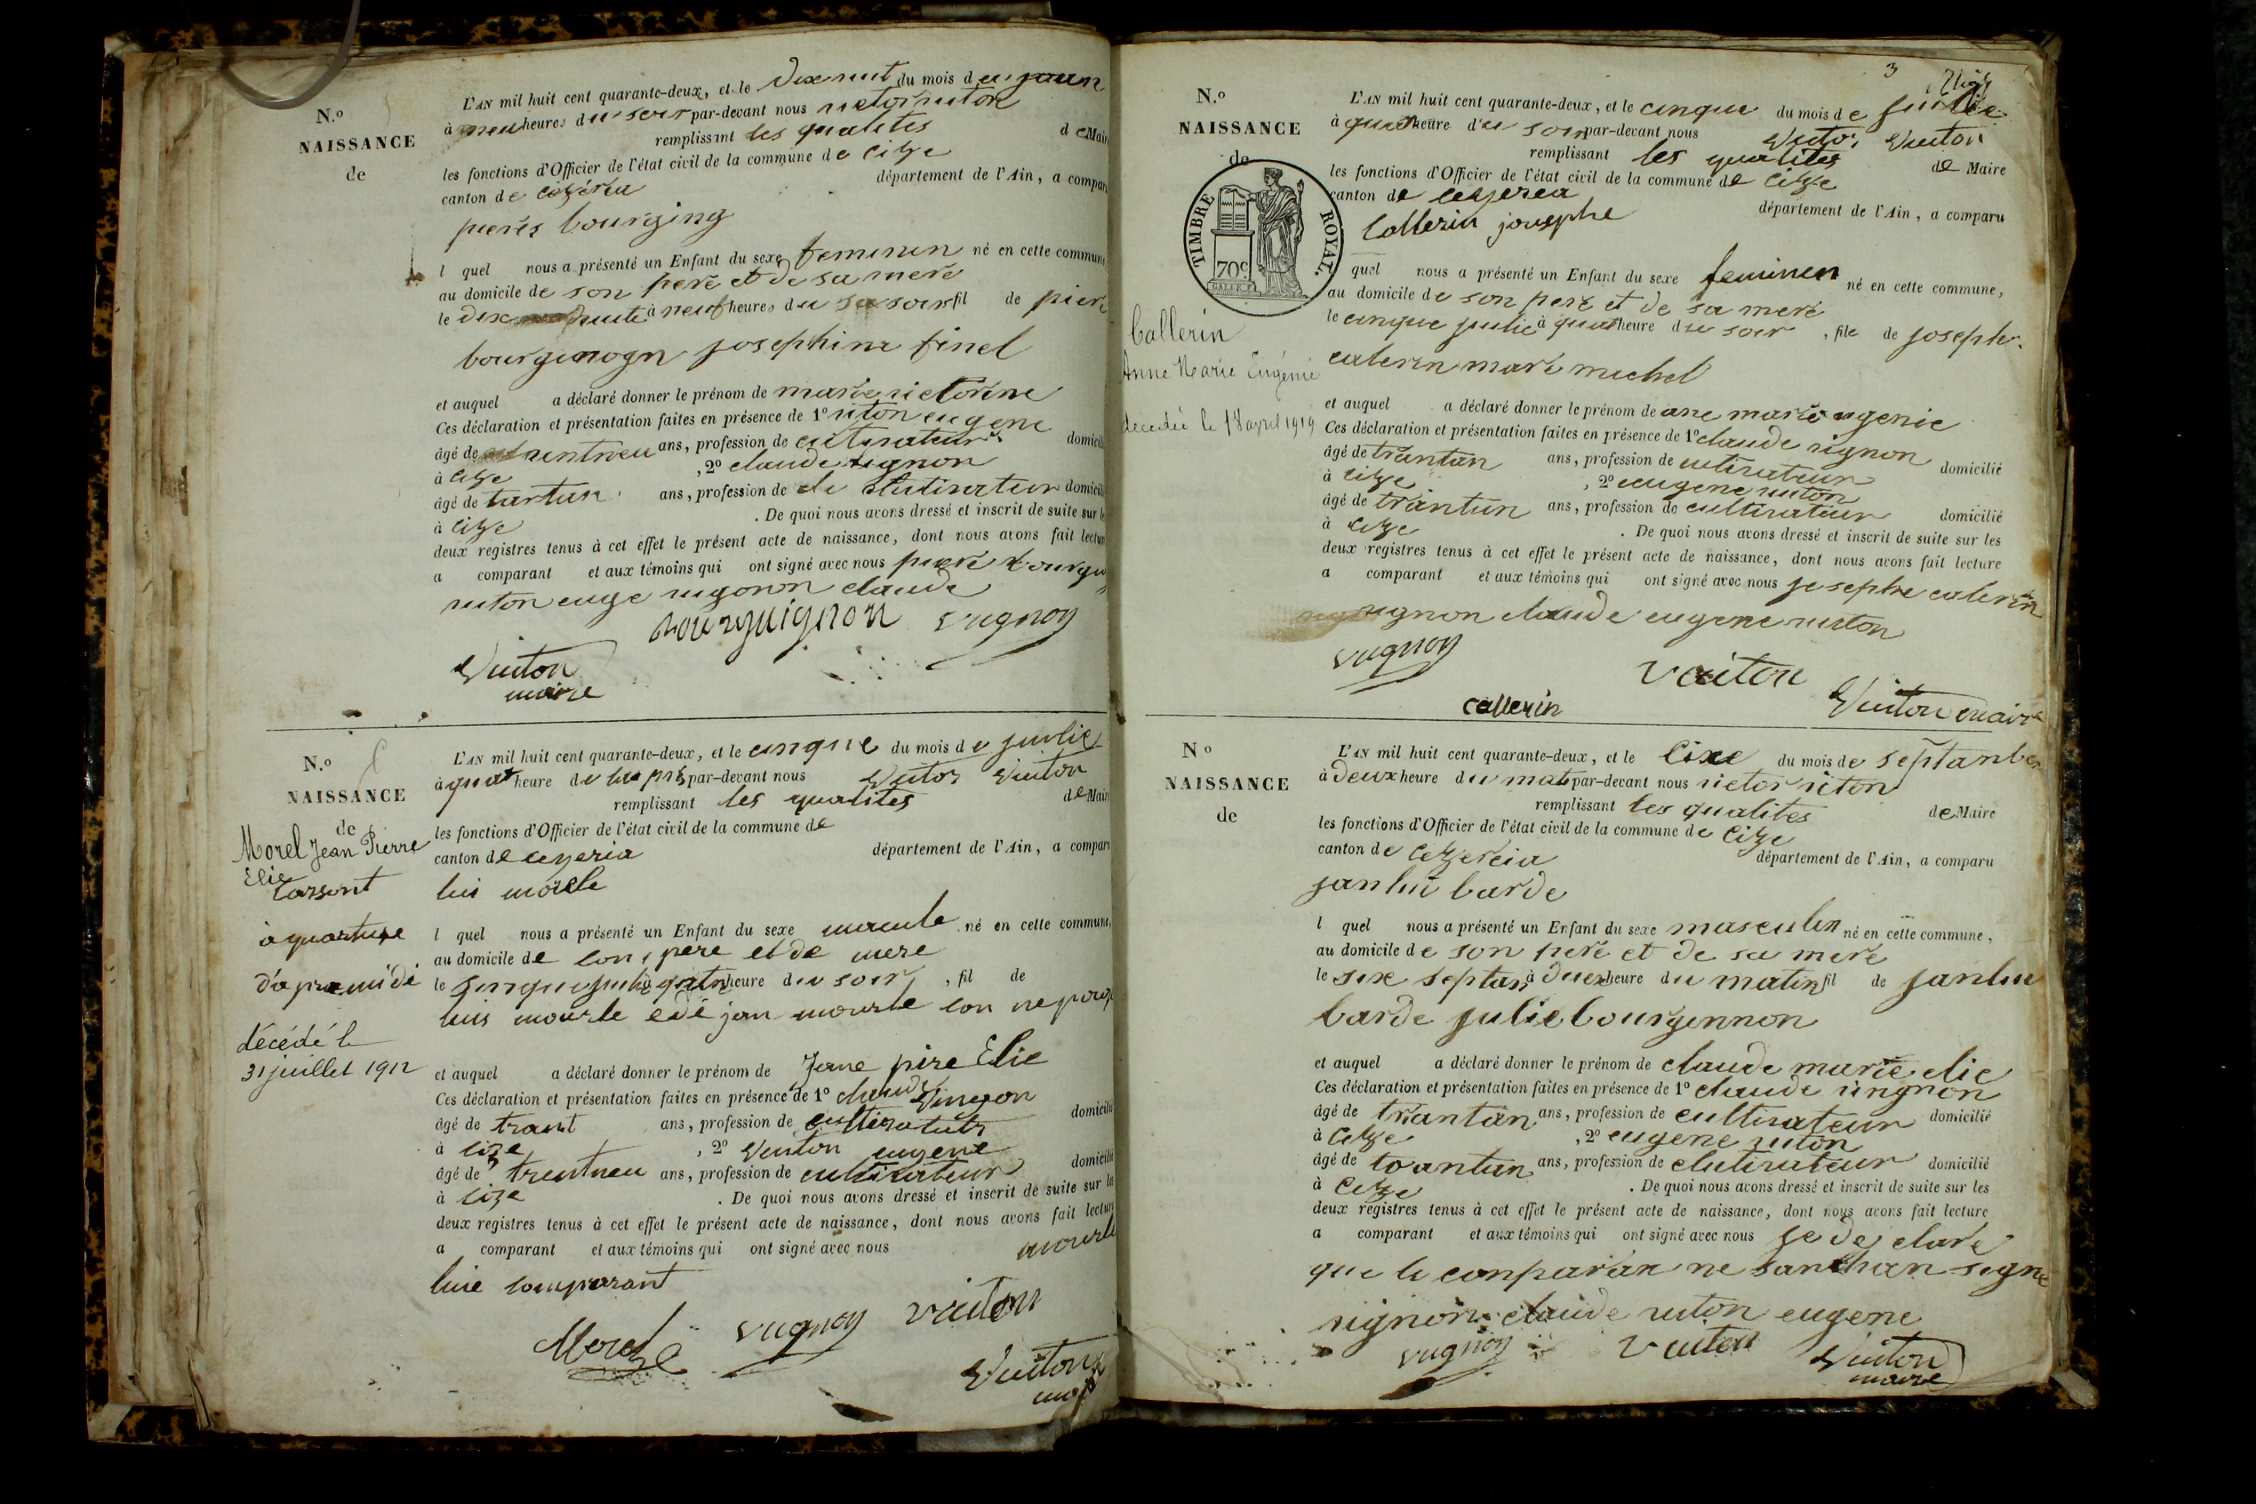 N.o
NAISSANCE
de
L'AN mil huit cent quarante-deux, et le dixuit du mois du juun
à neu heures du soir par-devant nous victor viton
remplissant les qualites de Mair
les fonctions d'Officier de l'état civil de la commune de Cize
canton de département de l'Ain, a compar
pierés bourging
l quel nous a présenté un Enfant du sexe feminin né en cette commune
au domicile de son peré et de sa meré
le dix huite à neuf heures du soir fil de pieré
bourginogn josephine finel
et auquel a déclaré donner le prénom de marie victorine
Ces déclaration et présentation faites en présence de 1o viton eugene
âgé de ans, profession de cultivateur domicili
à Cize , 2o claude vignon
âgé de tartan ans, profession de domicili
à Cize . De quoi nous avons dressé et inscrit de suite sur le
deux registres tenus à cet effet le présent acte de naissance, dont nous avons fait lectur
a comparant et aux témoins qui ont signé avec nous pieré bourgu
viton euge vugonon claude
bourguignon vugnon
Vuiton
maire
N.o
NAISSANCE
de
Morel Jean Pierre
Elie
à quarture
d'apremidi
décédé le
31 juillet 1912
L'AN mil huit cent quarante-deux, et le cinque du mois de juilie
à quat heure de par-devant nous Victor Vuiton
remplissant les qualites de Mair
les fonctions d'Officier de l'état civil de la commune de
canton de ceyeria département de l'Ain, a compar
lui
l quel nous a présenté un Enfant du sexe né en cette commune,
au domicile de son pere et de mere
le heure du soir , fil de
luis mourle jan mourle
et auquel a déclaré donner le prénom de Jene pire Elie
Ces déclaration et présentation faites en présence de 1o claude
âgé de trant ans, profession de domicili
à cize , 2o Vuiton eugene
âgé de trentneu ans, profession de cultivateur domicili
à cize . De quoi nous avons dressé et inscrit de suite sur le
deux registres tenus à cet effet le présent acte de naissance, dont nous avons fait lectur
a comparant et aux témoins qui ont signé avec nous mourle
luie comparant
Morel vugnon vuiton
Vuiton
3
N.o
NAISSANCE
de
TIMBRE ROYAL.
70c
Callerin
Anne Marie Eugénie
décédée le 18 avril 1919
L'AN mil huit cent quarante-deux, et le cinque du mois de
à quat heure du soir par-devant nous Victor Vuiton
remplissant les qualites de Maire
les fonctions d'Officier de l'état civil de la commune de Cize
canton de ceyerea département de l'Ain, a comparu
Callerin jousephe
quel nous a présenté un Enfant du sexe feminen né en cette commune,
au domicile de son peré et de sa meré
le cinque julie à quat heure du soir , file de josephe
calerin marie michel
et auquel a déclaré donner le prénom de ane marie ugenie
Ces déclaration et présentation faites en présence de 1o claude vignon
âgé de trantan ans, profession de cultivateur domicilié
à Cize , 2o eugene viton
âgé de trantun ans, profession de cultivateur domicilié
à Cize . De quoi nous avons dressé et inscrit de suite sur les
deux registres tenus à cet effet le présent acte de naissance, dont nous avons fait lecture
a comparant et aux témoins qui ont signé avec nous josephe calerin
vignon claude eugene viton
vugnon
vuiton
callerin Vuiton maire
No
NAISSANCE
de
L'AN mil huit cent quarante-deux, et le cixe du mois de septanber
à deux heure du mat par-devant nous victor viton
remplissant les qualites de Maire
les fonctions d'Officier de l'état civil de la commune de Cize
canton de cezereia département de l'Ain, a comparu
jan lui barde
l quel nous a présenté un Enfant du sexe masculin né en cette commune,
au domicile de son peré et de sa meré
le six septan à duex heure du matin fil de jan lui
barde julie bourgennon
et auquel a déclaré donner le prénom de claude marie elie
Ces déclaration et présentation faites en présence de 1o claude vingnon
âgé de trantan ans, profession de cultivateur domicilié
à Cize , 2o eugene viton
âgé de trantun ans, profession de clutivateur domicilié
à Cize . De quoi nous avons dressé et inscrit de suite sur les
deux registres tenus à cet effet le présent acte de naissance, dont nous avons fait lecture
a comparant et aux témoins qui ont signé avec nous je de clare
que le conparan ne san signe
vignon claude viton eugene
vugnon vuiton Vuiton
maire